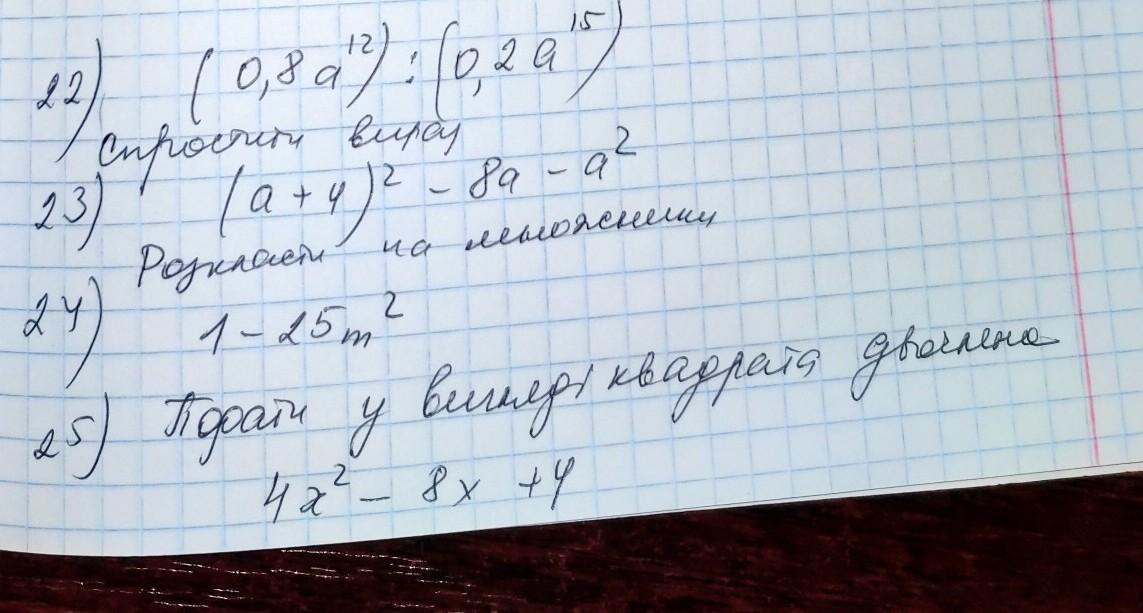 22) (0,8a¹²) : (0,2a¹⁵)
Спростити вираз
23) (a + 4)² - 8a - a²
Розкласти на множники
24) 1 - 25m²
25) Подати у вигляді квадрата двочлена
4x² - 8x + 4